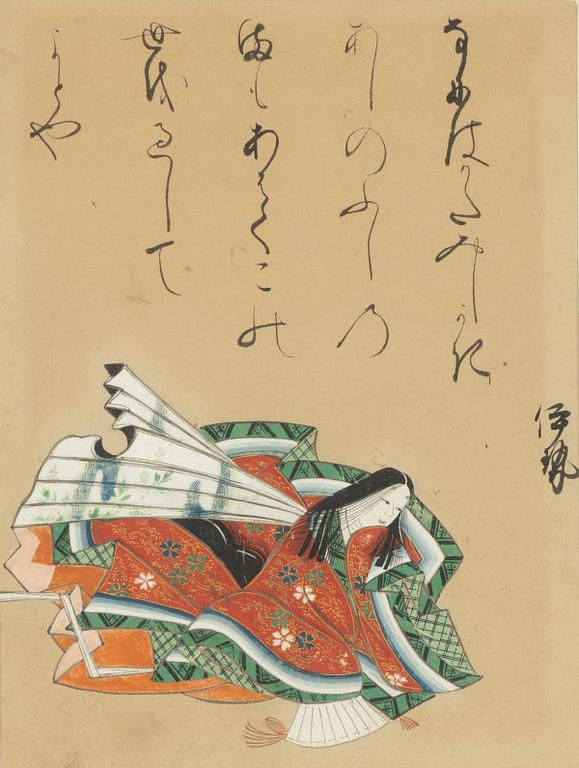 伊勢
なにはかたみしかき
あしのふしの
まもあはてこの
世を過して
よとや